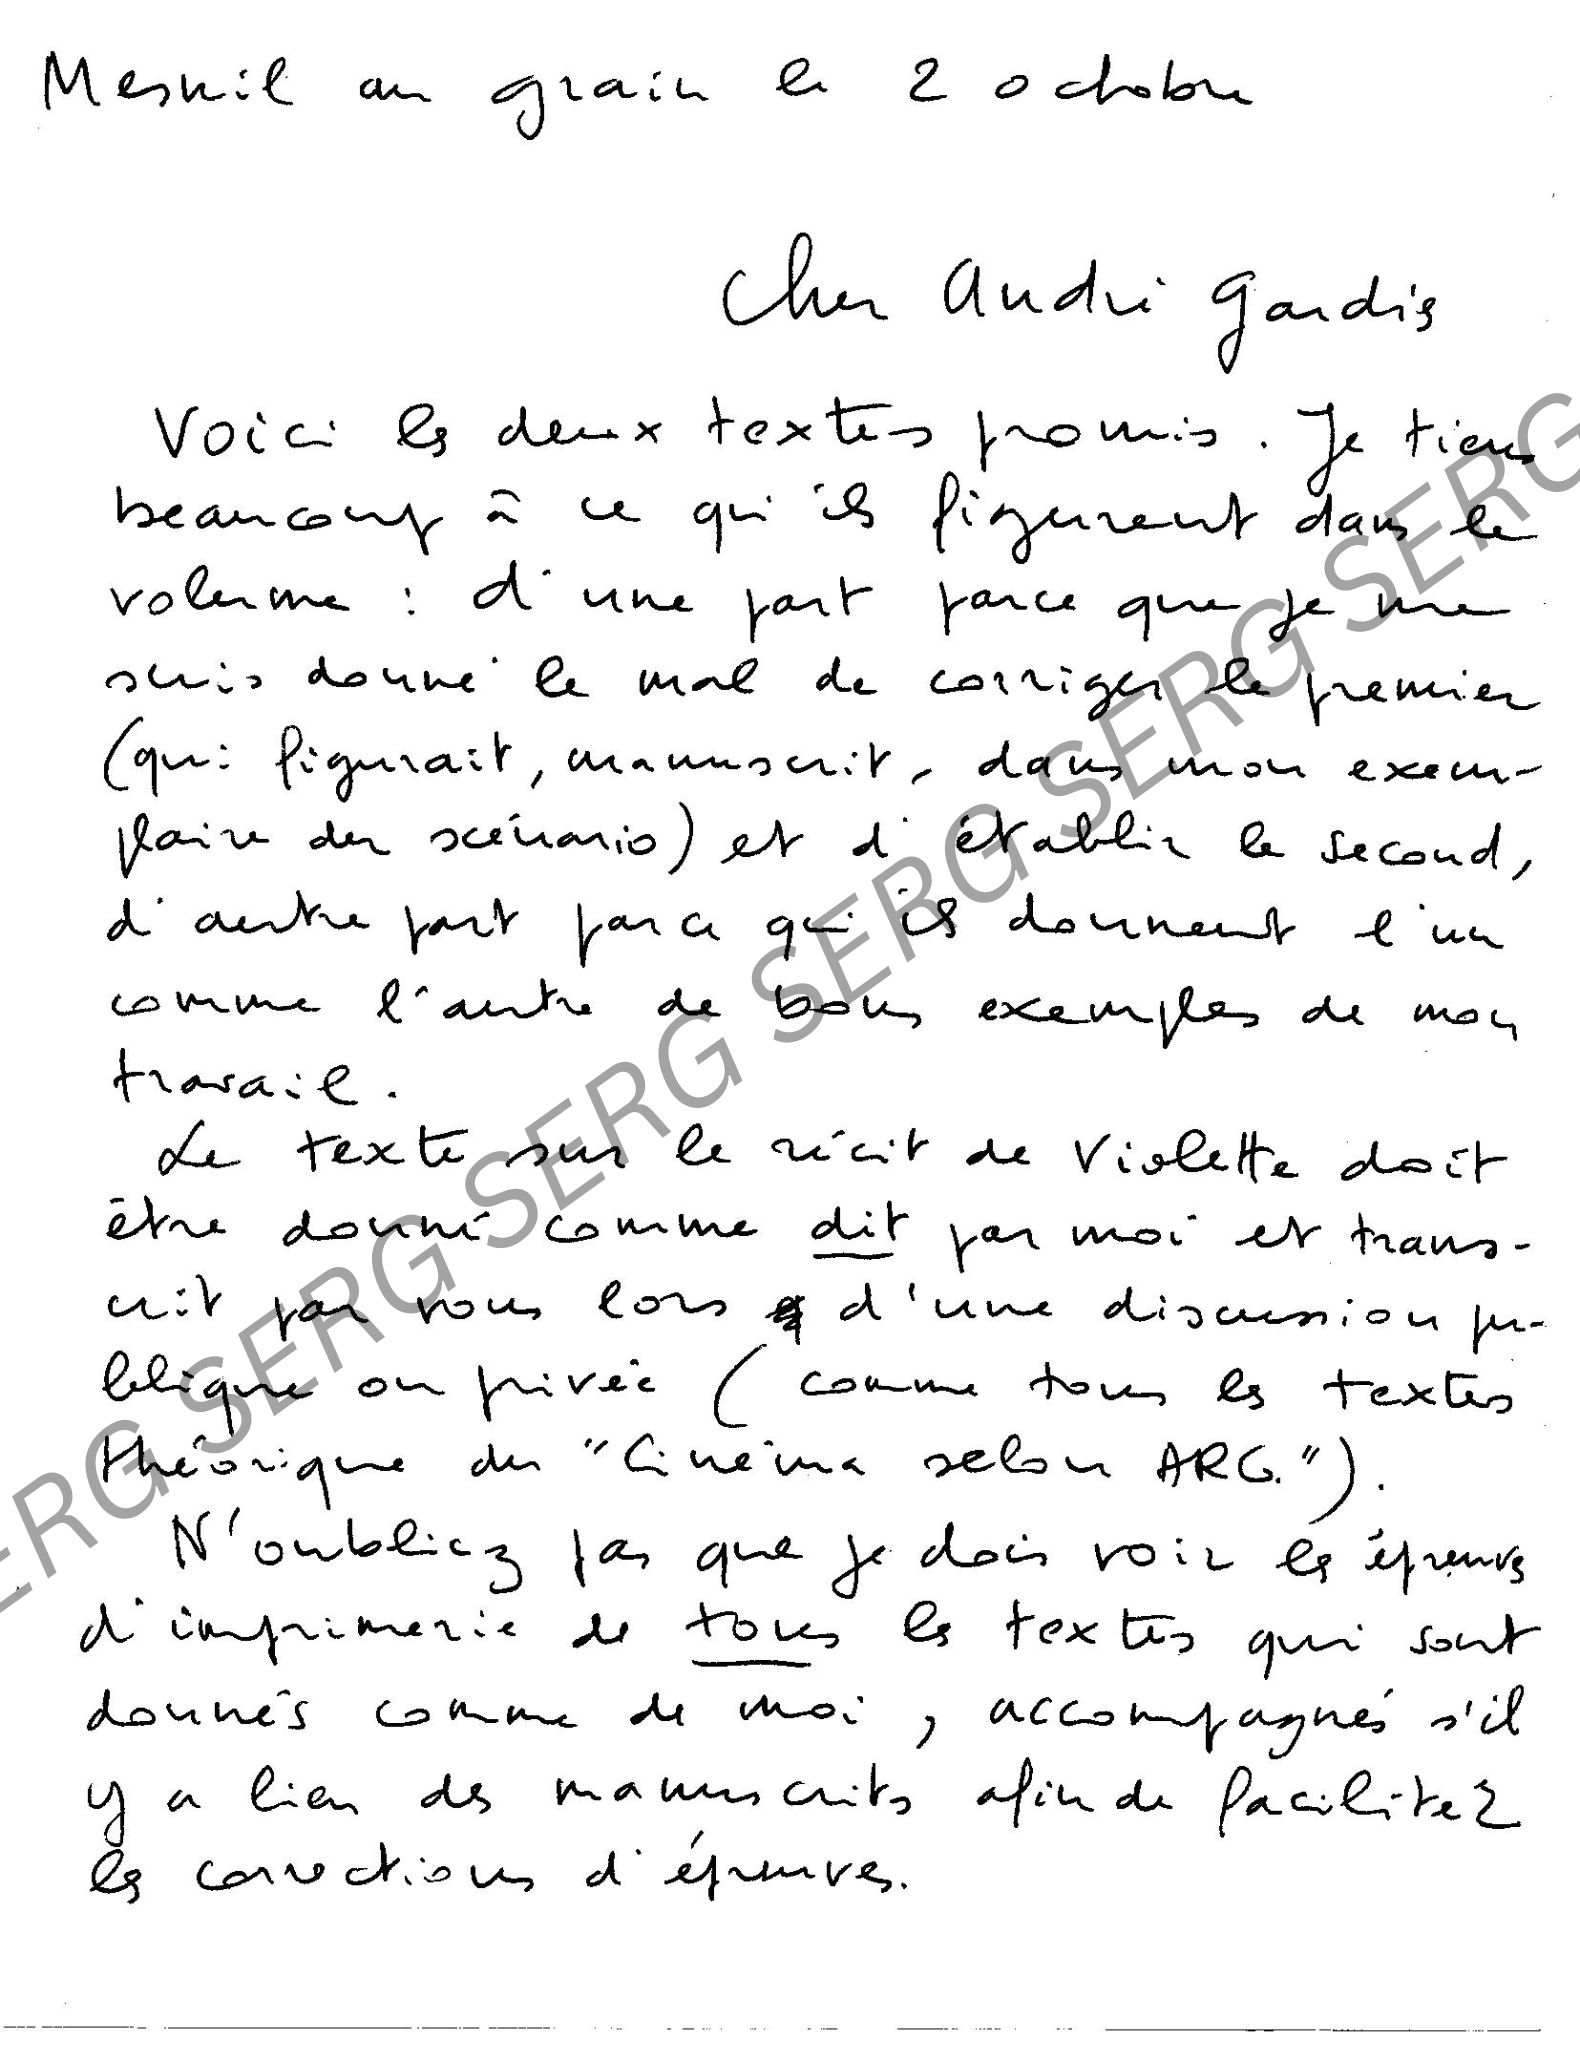 Mesnil au grain le 2 octobre
Cher André Gardis
Voici les deux textes promis. Je tiens
beaucoup à ce qu'ils figurent dans le
volume : d'une part parce que je me
suis donné le mal de corriger le premier
(qui figurait, manuscrit, dans mon exem-
plaire du scénario) et d'établir le second,
d'autre part parce qu'ils donnent l'un
comme l'autre de bons exemples de mon
travail.
Le texte sur le récit de Violette doit
être donné comme dit par moi et trans-
crit par vous lors d'une discussion pu-
blique ou privée (comme tous les textes
théorique du "Cinéma selon ARG.").
N'oubliez pas que je dois voir les épreuves
d'imprimerie de tous les textes qui sont
donnés comme de moi, accompagnés s'il
y a lieu des manuscrits afin de faciliter
les corrections d'épreuves.
SERG SERG SERG SERG SERG SERG SERG SERG